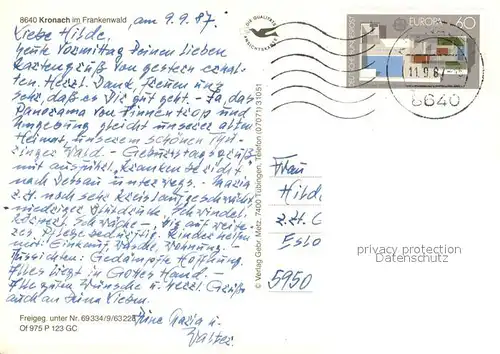 8640 Kronach im Frankenwald
am 9.9.87.
Liebe Hilde,
heute Vormittag Deinen lieben
Kartengruß von gestern erhal-
ten. Herzl. Dank, freuen uns
sehr, daß es Dir gut geht. – Ja, das
Panorama von Finnentrop und
Umgebung gleicht unserer alten
Heimat, unserem schönen Thü-
ringer Wald. – Geburtstagsgrüße
mit ausführl. Krankenbericht
nach Dessau unterwegs. – Maria
z.Zt. noch sehr kreislaufgeschwächt,
niedriger Blutdruck, Schwindel,
Schwäche – bis auf weite-
res pflegebedürftig, Kinder helfen
mit: Einkauf, Wäsche, Wohnung. –
Aussichten: Gedämpfte Hoffnung.
Alles liegt in Gottes Hand. –
Alle guten Wünsche u. herzl. Grüße
auch an Deine Lieben.
Deine Maria u.
Walter.
Freigeg. unter Nr. 69334/9/63228
Of 975 P 123 GC
© Verlag Gebr. Metz, 7400 Tübingen, Telefon (07071) 31051
DIE QUALITÄTS
EUROPA
60
DEUTSCHE BUNDESPOST
11.9.87
8640
Frau
Hilde
z.Zt. C
Eslo
5950
privacy protection
Datenschutz